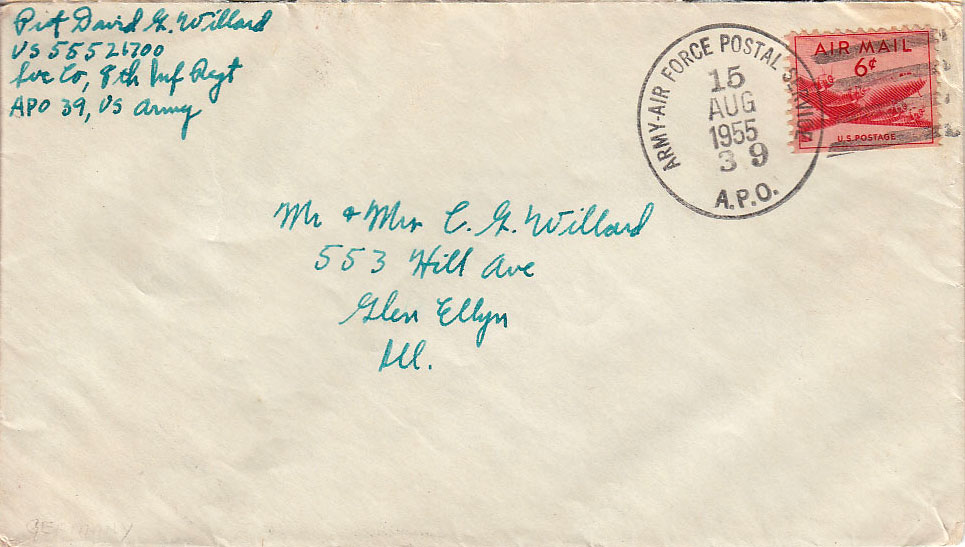 Pvt David G. Willard
US 55521700
Svc Co, 8th Inf Regt
APO 39, US Army
ARMY-AIR FORCE POSTAL SERVICE
15
AUG
1955
39
A.P.O.
AIR MAIL
6¢
U.S. POSTAGE
Mr + Mrs C. G. Willard
553 Hill Ave
Glen Ellyn
Ill.
GERMANY